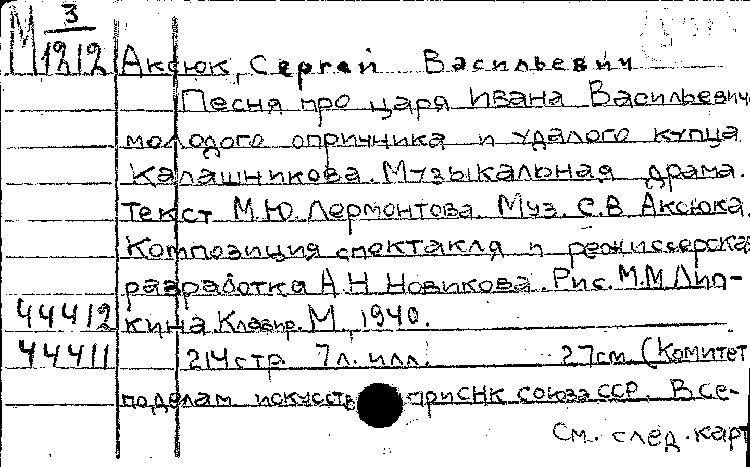 М 3/1212
Аксюк, Сергей Васильевич
Песня про царя Ивана Васильевич
молодого опричника и удалого купца
Калашникова. Музыкальная драма.
Текст М.Ю. Лермонтова. Муз. С.В. Аксюка.
Композиция спектакля и режиссерская
разработка А.Н. Новикова. Рис. М.М. Лип-
44412 кина. Клавир. М., 1940.
44411 214 стр. 7 л. илл. 27 см. (Комитет
по делам искусств при СНК Союза ССР. Все-
См. след. карт